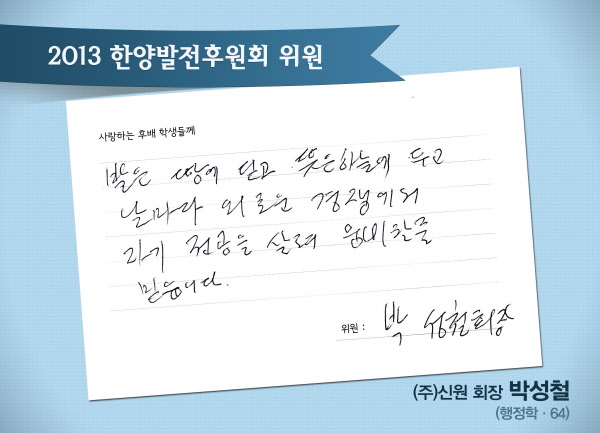 2013 한양발전후원회 위원
사랑하는 후배 학생들께
발은 땅에 딛고 뜻은 하늘에 두고
날마다 외로운 경쟁에서
자기 전공을 살려 승리할 줄
믿습니다.
위원 : 박성철 회장
(주)신원 회장 박성철
(행정학 · 64)